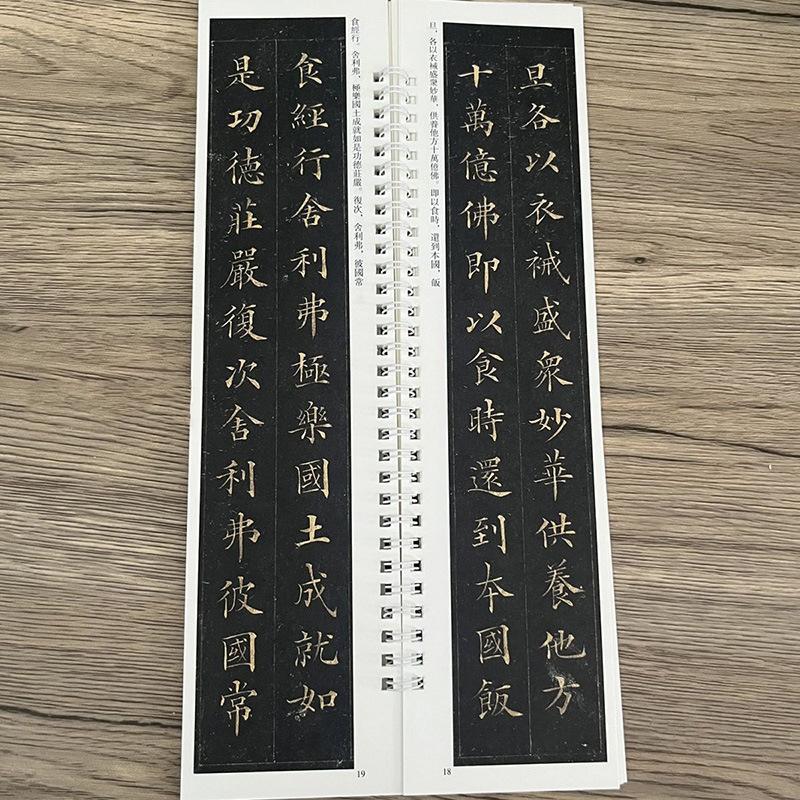 旦，各以衣裓盛衆妙華，供養他方十萬億佛。即以食時，還到本國，飯
旦各以衣裓盛衆妙華供養他方
十萬億佛即以食時還到本國飯
18
食經行。舍利弗，極樂國土成就如是功德莊嚴。復次，舍利弗，彼國常
食經行舍利弗極樂國土成就如
是功德莊嚴復次舍利弗彼國常
19